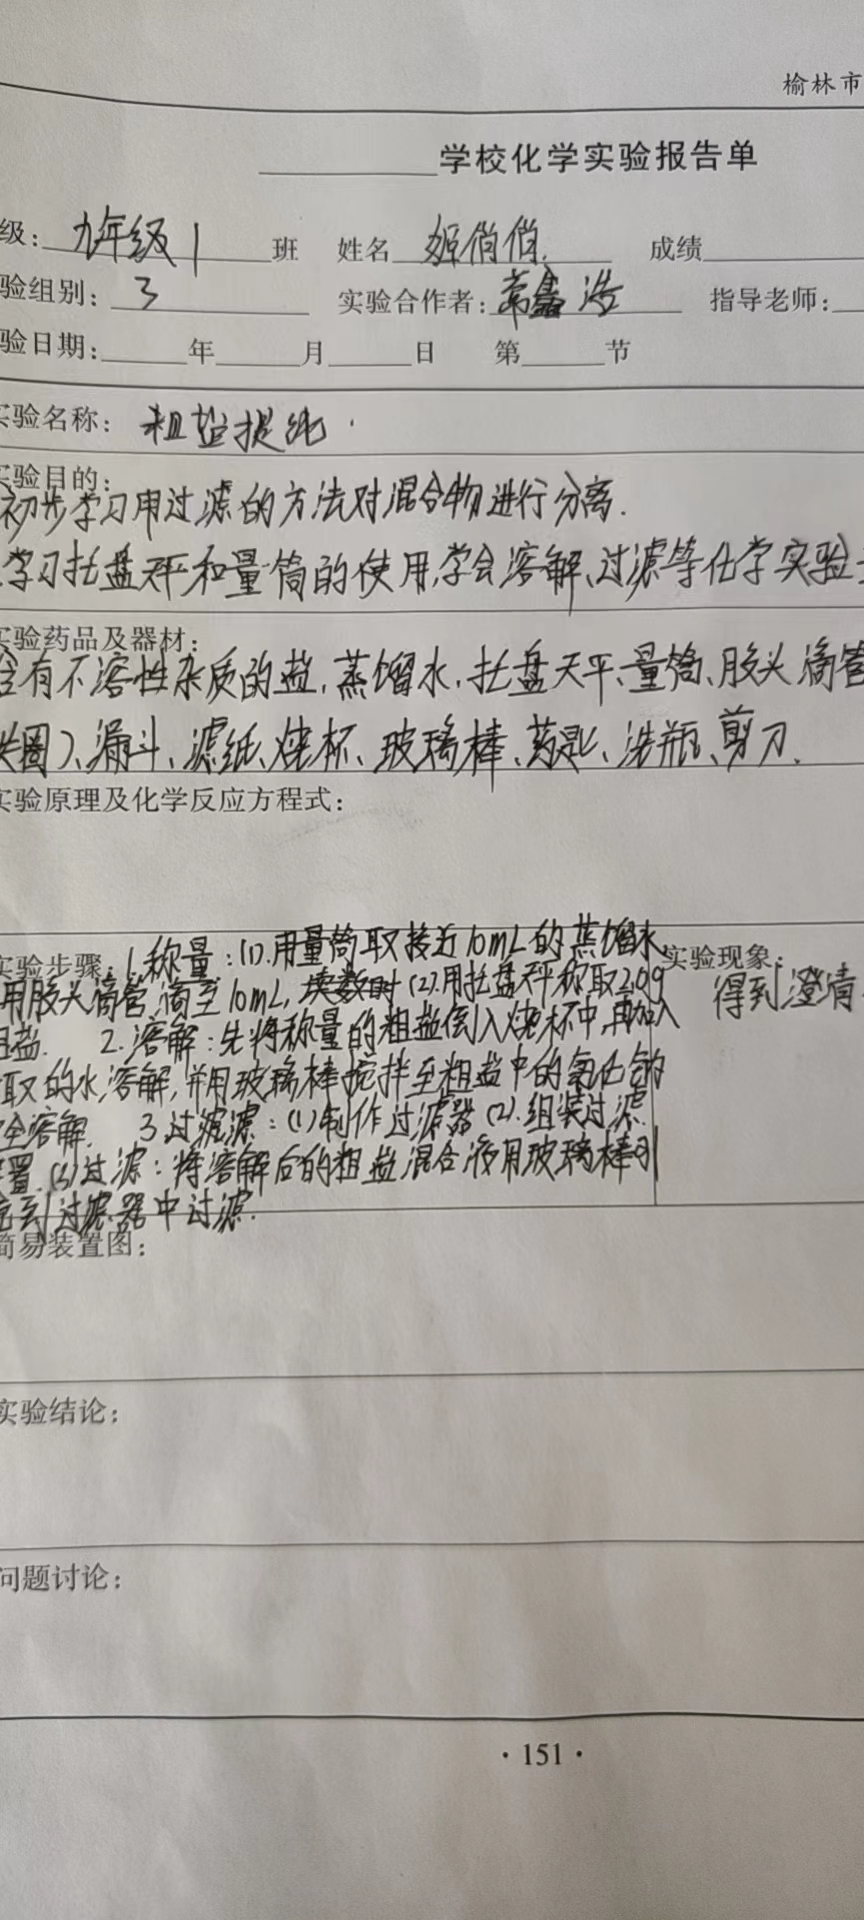 榆林市
学校化学实验报告单
级：九年级1班 姓名 姬佰佰. 成绩
验组别：3 实验合作者：常鑫浩 指导老师：
验日期： 年 月 日 第 节
实验名称：粗盐提纯.
实验目的：
初步学习用过滤的方法对混合物进行分离.
学习托盘天平和量筒的使用,学会溶解、过滤等化学实验
实验药品及器材：
含有不溶性杂质的盐、蒸馏水、托盘天平、量筒、胶头滴管
铁圈)、漏斗、滤纸、烧杯、玻璃棒、药匙、洗瓶、剪刀.
实验原理及化学反应方程式：
实验步骤：1.称量：(1).用量筒取接近10mL的蒸馏水 实验现象：
用胶头滴管滴至10mL, (2).用托盘天平称取2.0g 得到澄清
粗盐. 2.溶解：先将称量的粗盐倒入烧杯中,再加入
取的水,溶解,并用玻璃棒搅拌至粗盐中的氯化钠
全溶解. 3.过滤：(1)制作过滤器 (2).组装过滤
置.(3)过滤：将溶解后的粗盐混合液用玻璃棒引
流到过滤器中过滤.
简易装置图：
实验结论：
问题讨论：
·151·